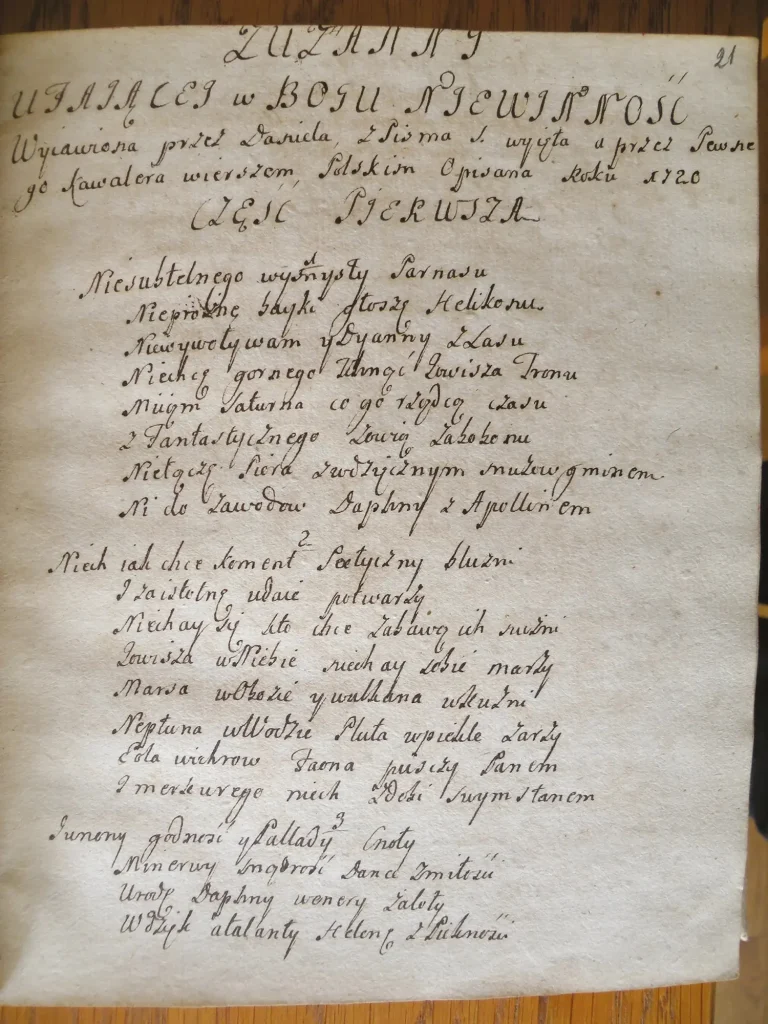 21
ZUZANNY
UFAIĄCEI w BOGU NIEWINNOŚĆ
Wyiawiona przez Daniela, z Pisma S. wyięta a przez Pewne
go Kawalera wierszem Polskim Opisana Roku 1720
CZĘŚĆ PIERWSZA
1
Niesubtelnego wysmysły Parnasu
Nieprożne bayki głoszę Helikonu
Niewywoływam y Dyanny z Lasu
Niechcę gornego Iowisza Tronu
Miiam Saturna co go rządcą czasu
z Fantastycznego zowią zabobonu
Niełączę Piera zwdzięcznym muzow gminem
Ni do Zawodow Daphny z Apollinem
2
Niech iak chce Koment Poetyczny bluzni
I zaistotne udaie potwarzy
Niechay się kto chce zabawą ich
Iowisza w Niebie niechay sobie marzy
Marsa wObozie y wulkana wKuzni
Neptuna wWodzie Pluta wpiekle zarzy
Eola wichrow Faona puszczy Panem
I merkurego niech zdobi swym stanem
3
Iunony godność y Pallady Cnoty
Minerwy mądrość Dana zmiłości
Urodę Daphny wenery zaloty
Wdzięk atalanty Helenę z Piękności